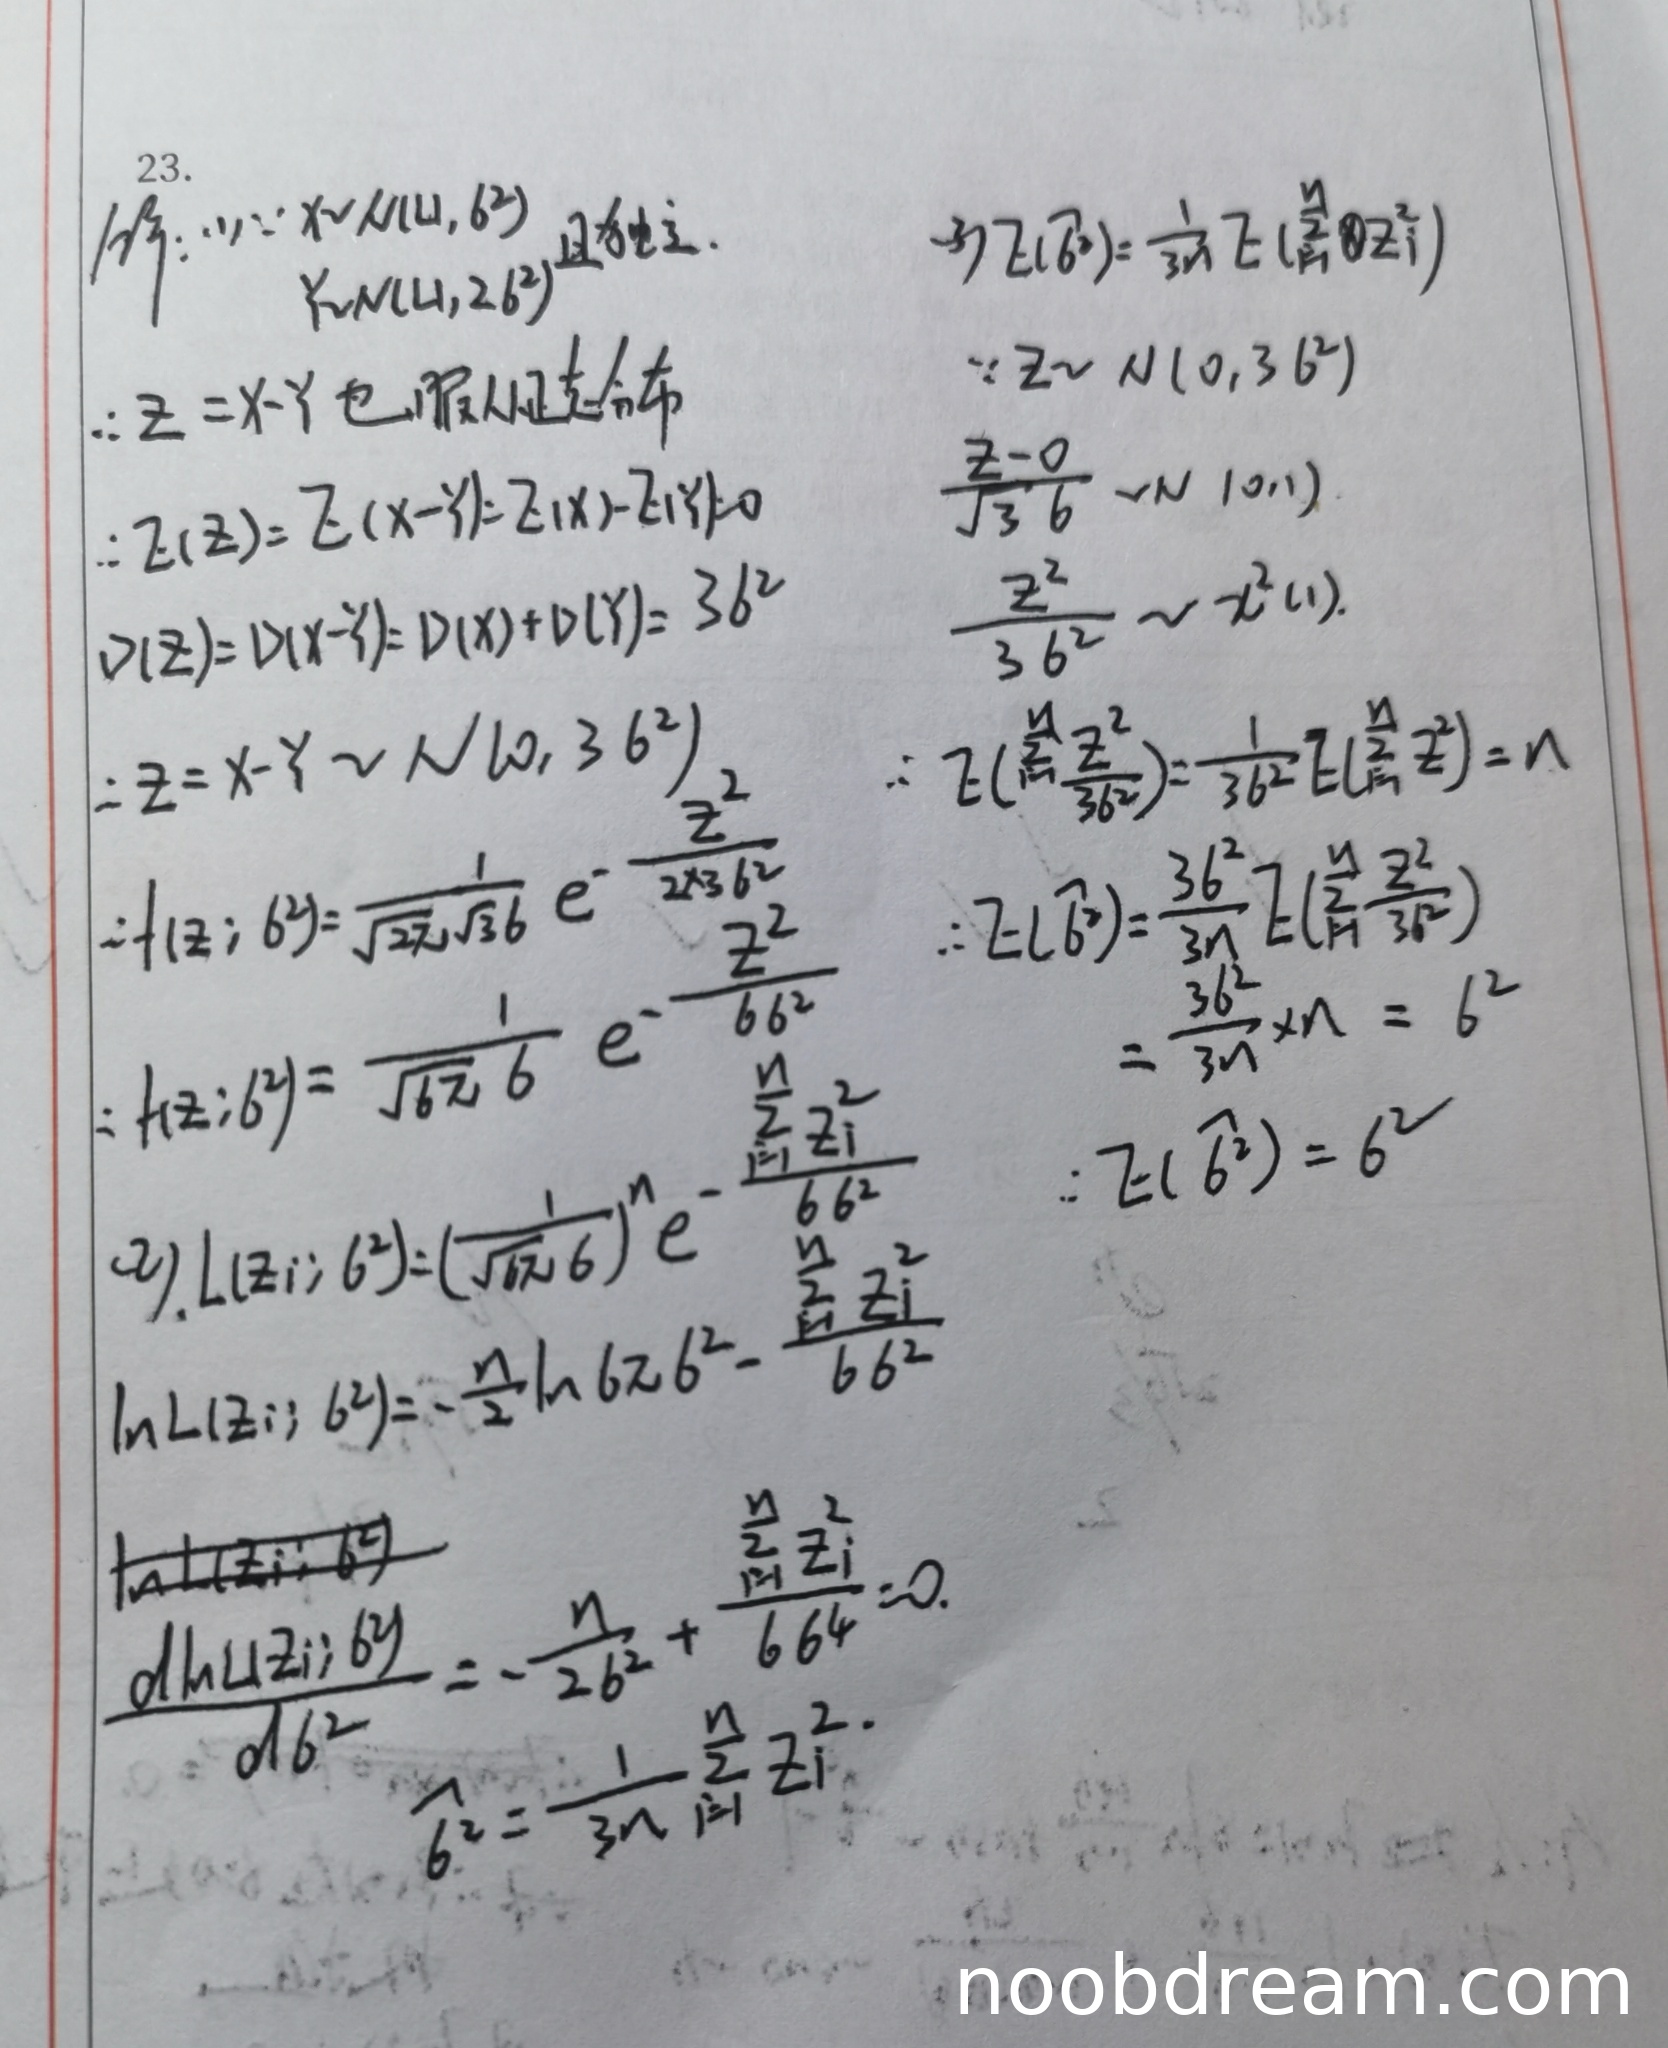 23.
解:(1)∵ X~N(μ, σ²) 且独立.
Y~N(μ, 2σ²)
∴ Z = X-Y 也服从正态分布
∴ E(Z) = E(X-Y) = E(X)-E(Y)=0
D(Z) = D(X-Y) = D(X)+D(Y) = 3σ²
∴ Z = X-Y ~ N(0, 3σ²)
∴ f(z; σ²) = \frac{1}{\sqrt{2π}\sqrt{3}σ} e^{-\frac{z^2}{2×3σ^2}}
∴ f(z; σ²) = \frac{1}{\sqrt{6π}σ} e^{-\frac{z^2}{6σ^2}}
(2). L(zi; σ²) = (\frac{1}{\sqrt{6π}σ})^n e^{-\frac{\sum_{i=1}^{n} z_i^2}{6σ^2}}
lnL(zi; σ²) = -\frac{n}{2} ln6πσ² - \frac{\sum_{i=1}^{n} z_i^2}{6σ^2}
\frac{dlnL(zi; σ²)}{dσ²} = -\frac{n}{2σ^2} + \frac{\sum_{i=1}^{n} z_i^2}{6σ^4} = 0.
\hat{σ²} = \frac{1}{3n} \sum_{i=1}^{n} z_i^2.
(3) E(\hat{σ²}) = \frac{1}{3n} E(\sum_{i=1}^{n} z_i^2)
∵ Z ~ N(0, 3σ²)
\frac{Z-0}{\sqrt{3}σ} ~ N(0,1)
\frac{Z^2}{3σ^2} ~ χ²(1).
∴ E(\sum_{i=1}^{n} \frac{Z^2}{3σ^2}) = \frac{1}{3σ^2} E(\sum_{i=1}^{n} Z^2) = n
∴ E(\hat{σ²}) = \frac{3σ^2}{3n} E(\sum_{i=1}^{n} \frac{Z^2}{3σ^2})
= \frac{3σ^2}{3n} × n = σ²
∴ E(\hat{σ²}) = σ²
noobdream.com